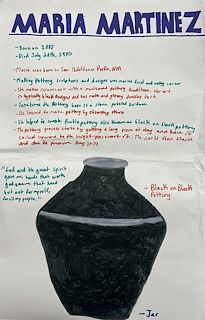 MARIA MARTINEZ
- Born on 1887
- Died July 20th, 1980
- Maria was born in San Ildefonso Pueblo, NM
- Making Pottery sculptures and designs was marias first and only career
- She makes ceramics art with a traditional pottery traditions. Her art
is typically black designs and has matte and glossy finishes to it.
- Sometimes the Pottery has a stone polished surface
- She learned to make pottery by observing others
- She helped to create Pueblo pottery also known as black on black pottery
- The pottery process starts by getting a long piece of clay and have it
coiled upward to the height you want it. She
"God and the great spirit
gave me hands that work
but not for myself,
for all my people."
- Black on Black
Pottery
- Jar